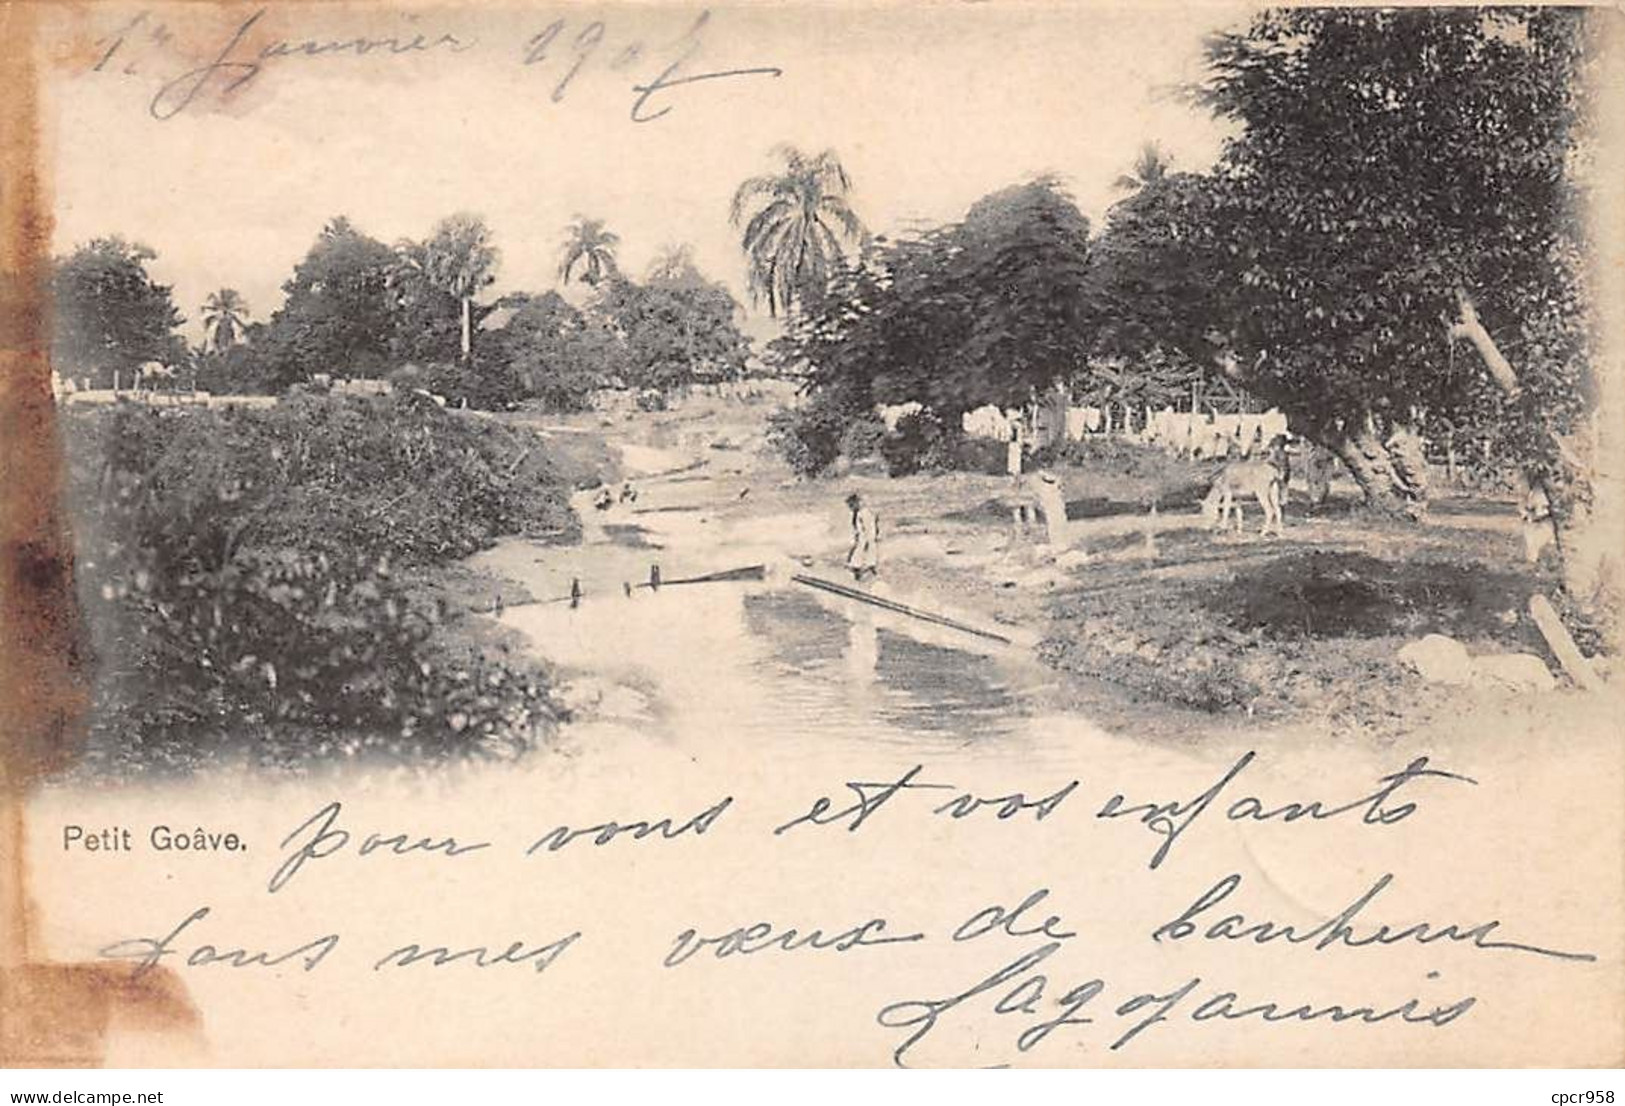 1er Janvier 1907
Petit Goâve.
pour vous et vos enfants
tous mes vœux de bonheur
Lagojannis
www.delcampe.net
cpcr958